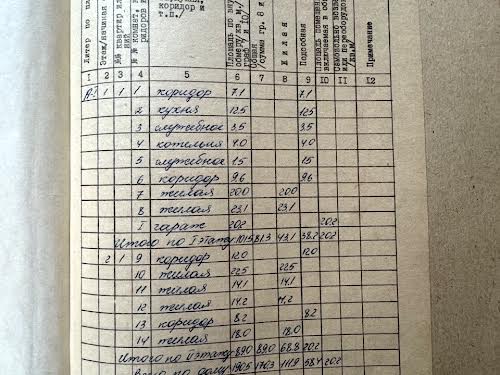 Литер по пл
Этаж/начиная с
№№ квартир или
№№ комнат,
ридоров и
коридор и
т.п./
Площадь по вну
обмеру/кв.м/
граф 10
Общая
/сумма гр. 8 и
Жилая
Подсобная
площадь помещен
включаемая в общ
Самовольно возв
или переоборудо
/кв.м/
Примечание
1 2 3 4 5 6 7 8 9 10 11 12
А-I 1 1 1 коридор 7.1 7.1
2 кухня 12.5 12.5
3 служебное 3.5 3.5
4 котельня 4.0 4.0
5 служебное 1.5 1.5
6 коридор 9.6 9.6
7 жилая 20.0 20.0
8 жилая 23.1 23.1
I гараж 20.2 20.2
Итого по I этажу 101.5 81.3 43.1 38.2 20.2
2 1 9 коридор 12.0 12.0
10 жилая 22.5 22.5
11 жилая 14.1 14.1
12 жилая 14.2 14.2
13 коридор 8.2 8.2
14 жилая 18.0 18.0
Итого по II этажу 89.0 89.0 68.8 20.2
по дому 190.5 170.3 111.9 58.4 20.2